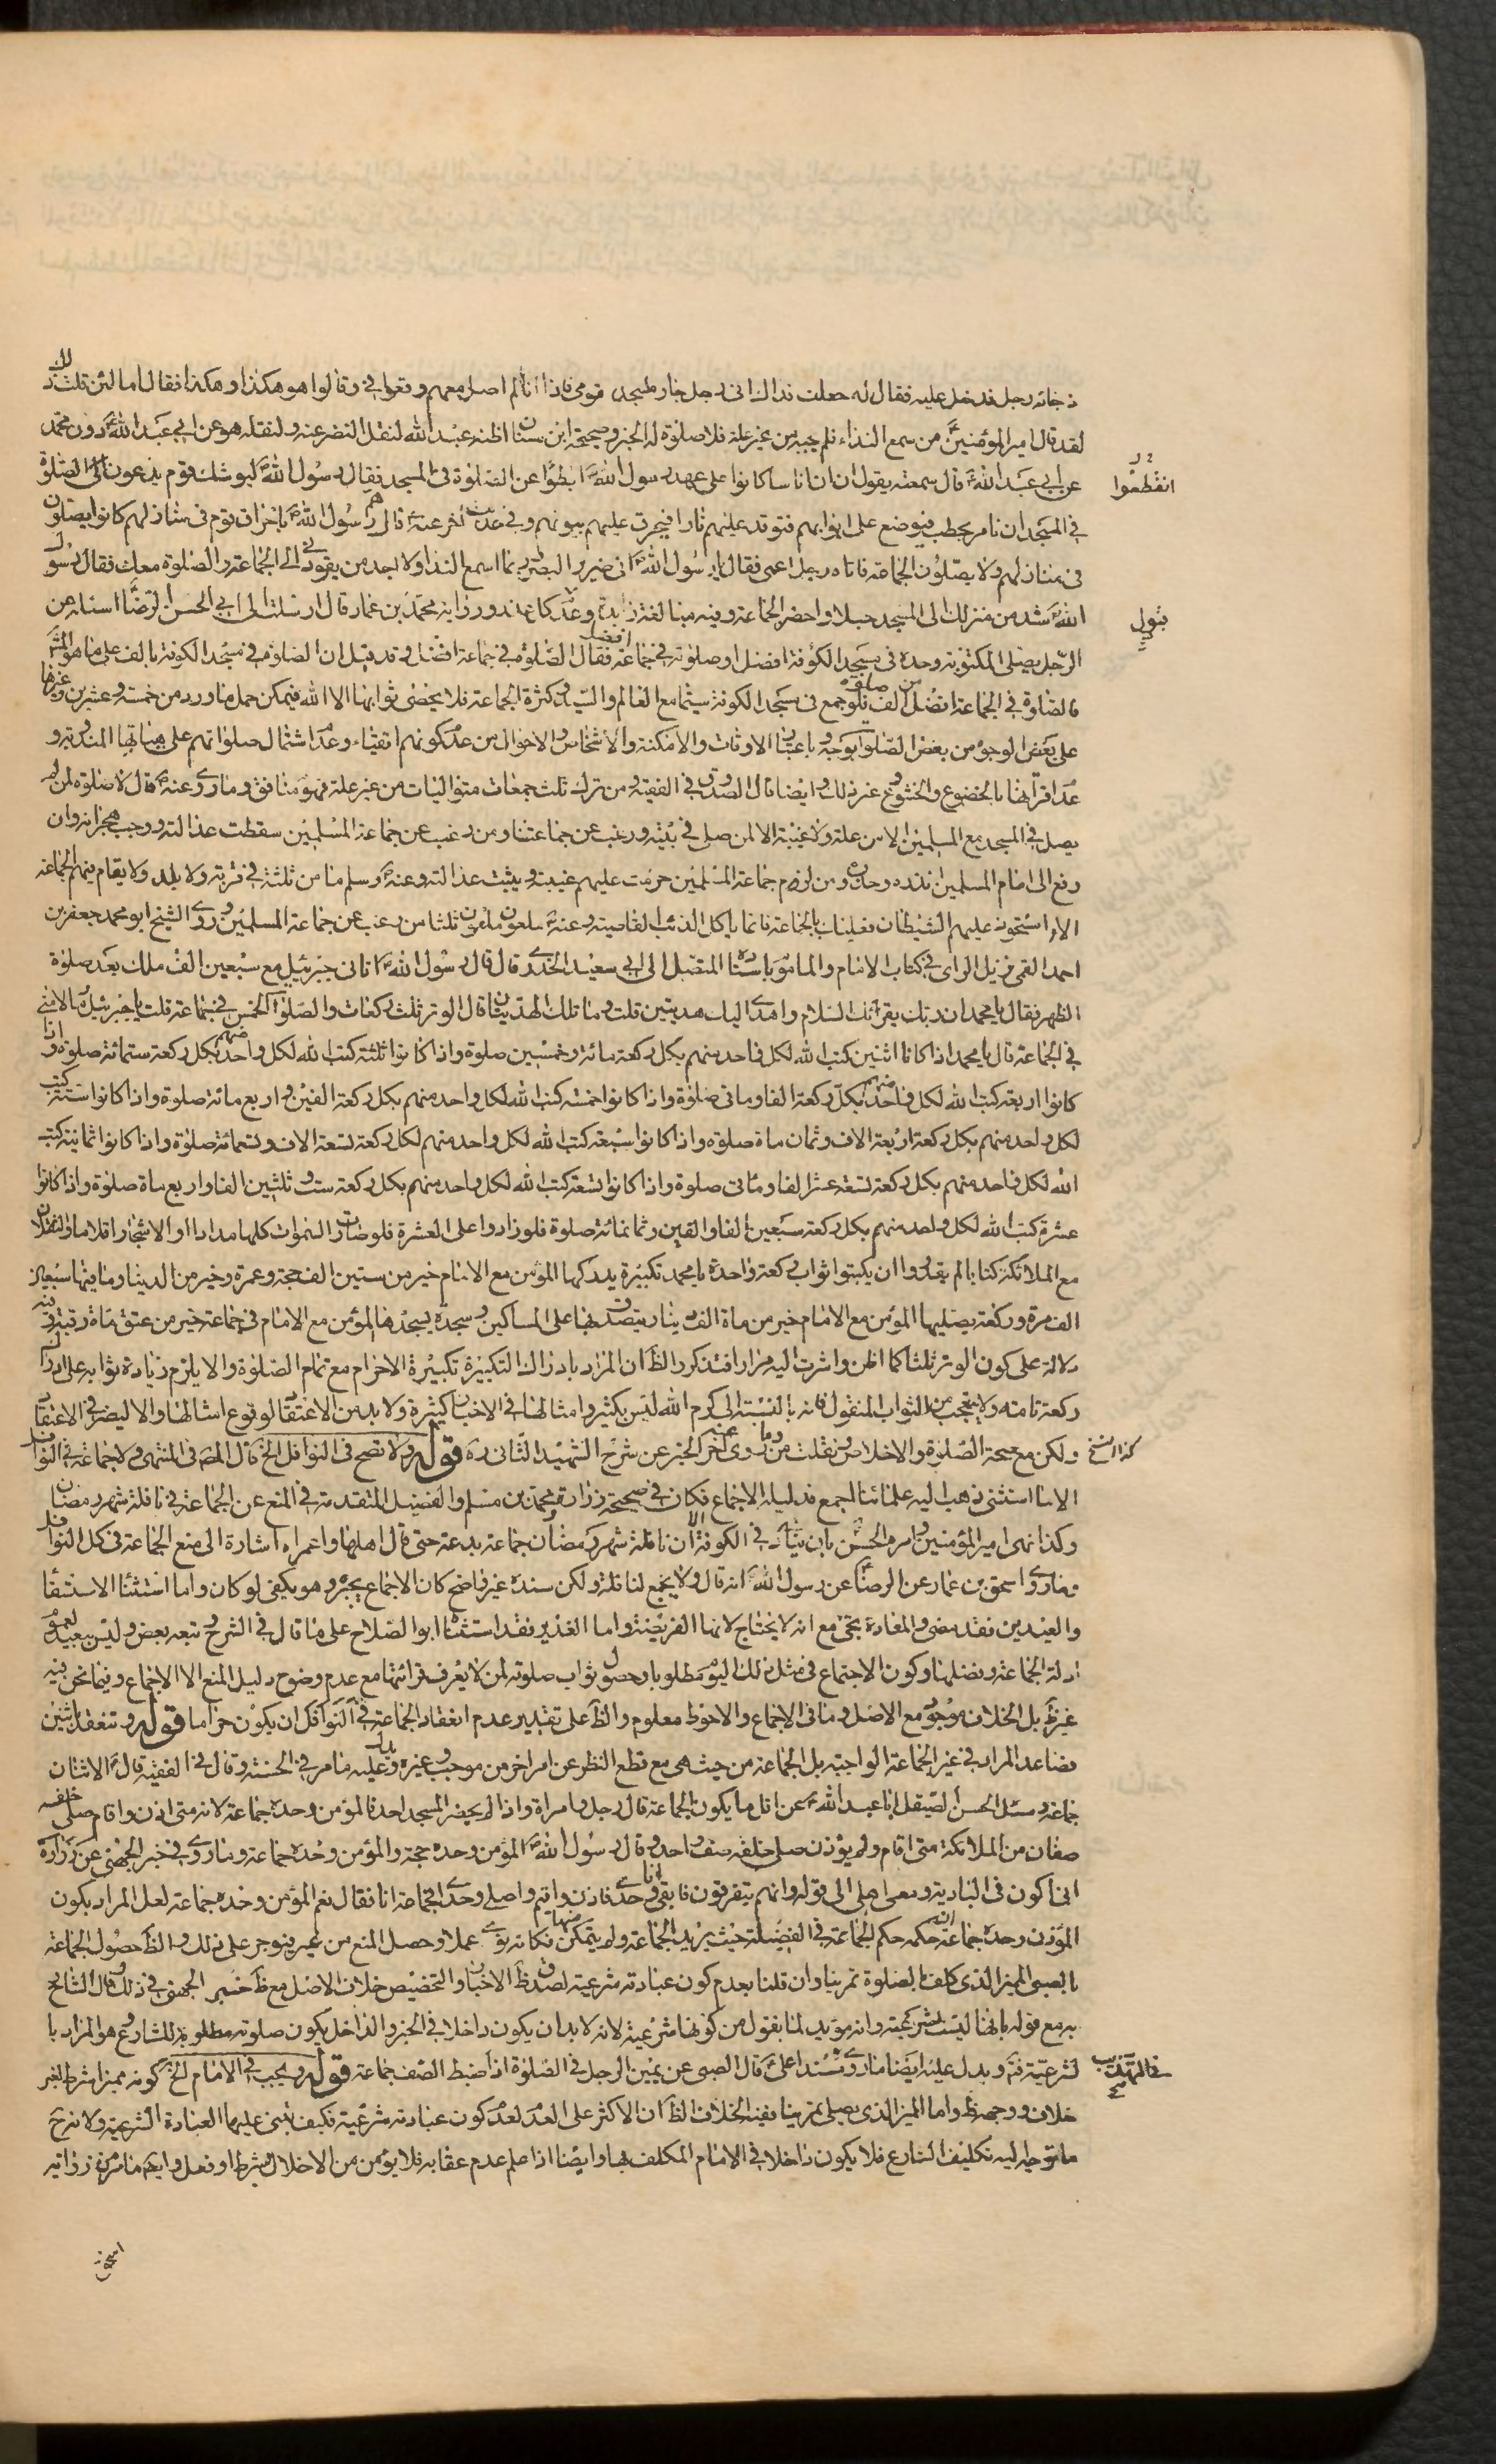 فجاءه رجل فدخل عليه فقال له جعلت فداك انى رجل جار مسجد قومى فاذا انا لم اصل معهم وقعوا فىّ وقالوا هو هكذا وهكذا فقال اما لئن قلت ذلك
لقد قال امير المؤمنينؑ من سمع النداء فلم يجبه من غير علة فلا صلوة له الخبر وصحيحة ابن سنان اظنه عبد الله لنقل النضر عنه ولنقله هو عن ابى عبد اللهؑ دون محمد
عن ابى عبد اللهؑ قال سمعته يقول ان اناسا كانوا على عهد رسول اللهؐ ابطؤا عن الصلوة فى المسجد فقال رسول اللهؐ ليوشك قوم يدعون الصلوة
فى المسجد ان نامر بحطب فيوضع على ابوابهم فتوقد عليهم نارا فيحرق عليهم بيوتهم وفى حديث اخر عنهؑ قال هم رسول اللهؐ باحراق قوم فى منازلهم كانوا يصلون
فى منازلهم ولا يصلون الجماعة فاتاه رجل اعمى فقال يا رسول اللهؐ انى ضرير البصر ربما اسمع النداء ولا اجد من يقودنى الى الجماعة والصلوة معك فقال رسول
اللهؐ شد من منزلك الى المسجد حبلا واحضر الجماعة وفيه مبالغة زايدة ورواية محمد بن عمار قال ارسلت الى ابى الحسن الرضاؑ اسئله عن
الرجل يصلى المكتوبة وحده فى مسجد الكوفة افضل او صلوته فى جماعة فقال الصلوة فى جماعة افضل وقد قيل ان الصلوة فى مسجد الكوفة بالف على ما هو المشهور
فالصلوة فى الجماعة افضل من الف صلوة فلو جمع فى مسجد الكوفة سيما مع العالم والسيد وكثرة الجماعة فلا يحصى ثوابها الا الله فيمكن حمل ما ورد من خمسة وعشرين وغيرها
على بعض الوجوه من بعض الصلوات بوجه باعتبار الاوقات والامكنة والاشخاص والاحوال من عدم كونهم اتقياء وعدم اشتمال صلواتهم على هيئاتها المندوبة و
عدم اقترانها بالخضوع والخشوع وغير ذلك وايضا قال الصدوق فى الفقيه ومن ترك ثلث جمعات متواليات من غير علة فهو منافق وما روى عنهؑ قال لا صلوة لمن لم
يصل فى المسجد مع المسلمين الا من علة ولا غيبة الا لمن صلى فى بيته ورغب عن جماعتنا ومن رغب عن جماعة المسلمين سقطت عدالته ووجب هجرانه وان
رفع الى امام المسلمين انذره وحذره ومن لزم جماعة المسلمين حرمت عليهم غيبته ويثبت عدالته وعنهؐ وسلم ما من ثلثة فى قرية ولا بلد ولا يقام فيهم الجماعة
الا استحوذ عليهم الشيطان فعليك بالجماعة فانما ياكل الذئب القاصية وعنهؐ ملعون ملعون ثلثا من رغب عن جماعة المسلمين وروى الشيخ ابو محمد جعفر بن
احمد القمى نزيل الراى فى كتاب الامام والماموم باسناده المتصل الى ابى سعيد الخدرى قال قال رسول اللهؐ اتانى جبرئيل مع سبعين الف ملك بعد صلوة
الظهر فقال يا محمد ان ربك يقرئك السلام واهدى اليك هديتين قلت وما تلك الهديتان قال الوتر ثلث ركعات والصلوة الخمس فى جماعة قلت يا جبرئيل ما لامتى
فى الجماعة قال يا محمد اذا كانا اثنين كتب الله لكل واحد منهم بكل ركعة مائة وخمسين صلوة واذا كانوا ثلثة كتب الله لكل واحد منهم بكل ركعة ستمائة صلوة واذا
كانوا اربعة كتب الله لكل واحد منهم بكل ركعة الفا ومائى صلوة واذا كانوا خمسة كتب الله لكل واحد منهم بكل ركعة الفين واربع مائة صلوة واذا كانوا ستة كتب
لكل واحد منهم بكل ركعة اربعة الاف وثمان ماة صلوة واذا كانوا سبعة كتب الله لكل واحد منهم لكل ركعة تسعة الاف وستمائة صلوة واذا كانوا ثمانية كتب
الله لكل واحد منهم بكل ركعة تسعة عشر الفا ومائى صلوة واذا كانوا تسعة كتب الله لكل واحد منهم بكل ركعة ست وثلثين الفا واربع ماة صلوة واذا كانوا
عشرة كتب الله لكل واحد منهم بكل ركعة سبعين الفا والفين وثمانمائة صلوة فلو زادوا على العشرة فلو صارت السموات كلها مدادا والاشجار اقلاما والثقلان
مع الملائكة كتابا لم يقدروا ان يكتبوا ثواب ركعة واحدة يا محمد تكبيرة يدركها المؤمن مع الامام خير من ستين الف حجة وعمرة وخير من الدنيا وما فيها سبعين
الف مرة وركعة يصليها المؤمن مع الامام خير من ماة الف دينار يتصدق بها على المساكين وسجدة يسجدها المؤمن مع الامام فى جماعة خير من عتق ماة رقبة وفيه
دلالة على كون الوتر ثلثا كما اظن واشرت اليه مرارا فتذكر والظ ان المراد بادراك التكبيرة تكبيرة الاحرام مع تمام الصلوة والا يلزم زيادة ثوابه على ادراك
ركعة تامة ولا يتعجب من الثواب المنقول فانه بالنسبة الى كرم الله ليس بكثير وامثالها فى الاخبار كثيرة ولا بد من الاعتقاد لوقوع امثالها والا ليضر فى الاعتقاد
ولكن مع صحة الصلوة والاخلاص ونقلت من وما روى عنه اخر الخبر عن شرح الشهيد الثانى ره قوله ولا تصح فى النوافل الخ قال المص فى المنتهى ولا جماعة فى النوافل
الا ما استثنى ذهب اليه علمائنا اجمع فدليله الاجماع فكان فى صحيحة زرارة ومحمد بن مسلم والفضيل المتقدمة فى المنع عن الجماعة فى نافلة شهر رمضان
وكذا نهى امير المؤمنينؑ وامر الحسنؑ بان ينادى فى الكوفة الا ان نافلة شهر رمضان جماعة بدعة حتى قال اهلها واعمراه اشارة الى منع الجماعة فى كل النوافل
وما روى اسحق بن عمار عن الرضاؑ عن رسول اللهؐ انه قال ولا يجمع لنافلة ولكن سنده غير واضح كان الاجماع يجبره وهو يكفى لو كان واما استثنا الاستسقاء
والعيدين فقد مضى والمعادة يجئ مع انه لا يحتاج لانها الفريضة واما الغدير فقد استثناه ابو الصلاح على ما قال فى الشرح تبعه بعض وليس ببعيد لعموم
ادلة الجماعة وفضلها وكون الاجتماع فى مثل ذلك اليوم مطلوبا وحصول ثواب صلوته لمن لا يعرف قرائتها مع عدم وضوح دليل المنع الا الاجماع وفيما نحن فيه
غير ظ بل الخلاف موجود مع الاصل وما فى الاجماع والاحوط معلوم والظ على تقدير عدم انعقاد الجماعة فى النوافل ان يكون حراما قوله وتنعقد باثنين
فصاعدا المراد فى غير الجماعة الواجبة بل الجماعة من حيث هى مع قطع النظر عن امر اخر من موجب وغيره ويدل عليه ما مر فى الحسنة وقال فى الفقيه قالؑ الاثنان
جماعة وسئل الحسن الصيقل ابا عبد اللهؑ عن اقل ما يكون الجماعة قال رجل وامراة واذا لم يحضر المسجد احد فالمؤمن وحده جماعة لانه متى اذن واقام صلى خلفه
صفان من الملائكة متى اقام ولم يؤذن صلى خلفه صف واحد وقال رسول اللهؐ المؤمن وحده حجة والمؤمن وحده جماعة وما روى فى خبر الجهنى عن زرارة
انى اكون فى البادية ومعى اهلى الى قوله وانهم يتفرقون فابقى انا وحدى فاؤذن واقيم واصلى وحدى افجماعة انا فقال نعم المؤمن وحده جماعة لعل المراد بكون
المؤذن وحده جماعة انه حكمه حكم الجماعة فى الفضيلة حيث يريد الجماعة ولم يتمكن منها فكانه نوى عملا وحصل المنع من غيره فيوجر على ذلك والظ حصول الجماعة
بالصبى المميز الذى كلف بالصلوة تمرينا وان قلنا بعدم كون عبادته شرعية لصدق ظ الاخبار والتخصيص خلاف الاصل مع ظ خبر الجهنى فى ذلك وقال الشارح
به مع قوله بانها ليست بشرعية وانه مؤيد لما يقول من كونها شرعية لانه لا بد ان يكون داخلا فى الخبر والداخل يكون صلوته مطلوبة للشارع وهو المراد با
لشرعية فت ويدل عليه ايضا ما روى مسندا عن علىؑ قال الصبى عن يمين الرجل فى الصلوة اذا ضبط الصف جماعة قوله ويجب فى الامام الخ كونه مميزا شرط لغير
خلاف ووجهه ظ واما المميز الذى يصلى تمرينا ففيه الخلاف الظ ان الاكثر على العدم لعدم كون عبادته شرعية فكيف تبنى عليها العبادة الشرعية ولانه ح
ما توجه اليه تكليف الشارع فلا يكون داخلا فى الامام المكلف بها وايضا اذا علم عدم عقابه فلا يؤمن من الاخلال بشرط او فعل وايده ما مر فى رواية
انقطعوا
كذا النسخ
فى التهذيب
اسحق